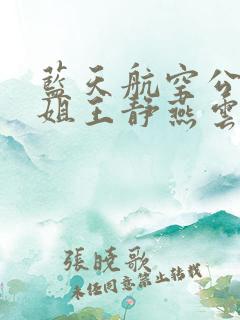 藍天航空公
姐王靜燕雲
張曉歌
未經同意禁止轉載